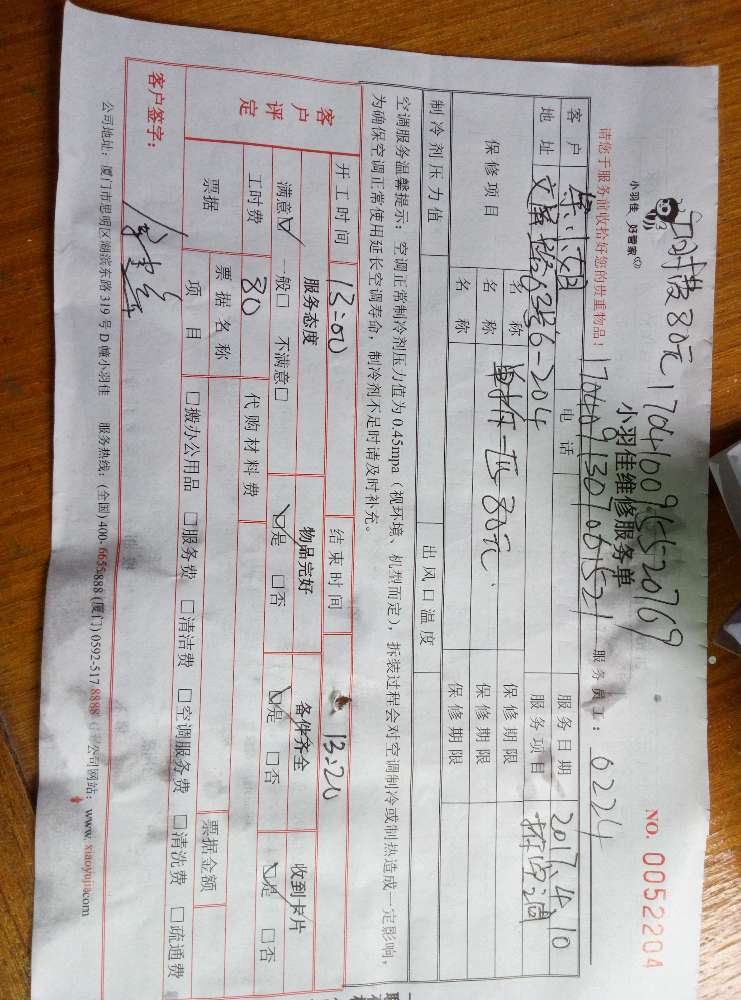 小羽佳 好管家
工时费80元 170410095520769
小羽佳维修服务单
NO. 0052204
请您于服务前收拾好您的贵重物品!
服务员工: 0224
客户 电话 服务日期 2017.4.10
地址 服务项目
保修项目 名称 保修期限
名称 保修期限
名称 保修期限
制冷剂压力值 出风口温度
空调服务温馨提示: 空调正常制冷剂压力值为0.45mpa(视环境、机型而定),拆装过程会对空调制冷或制热造成一定影响,
为确保空调正常使用延长空调寿命,制冷剂不足时请及时补充。
开工时间 13:00 结束时间 13:20
客户评定 服务态度 物品完好 备件齐全 收到卡片
满意☑ 一般□ 不满意□ ☑是 □否 ☑是 □否 ☑是 □否
工时费 80 代购材料费
票据 票据名称 票据金额
项目 □搬办公用品 □服务费 □清洁费 □空调服务费 □清洗费 □疏通费
客户签字:
公司地址: 厦门市思明区湖滨东路319号D幢小羽佳 服务热线: (全国)400-6655888 (厦门)0592-5178888 公司网站: www.xiaoyujia.com